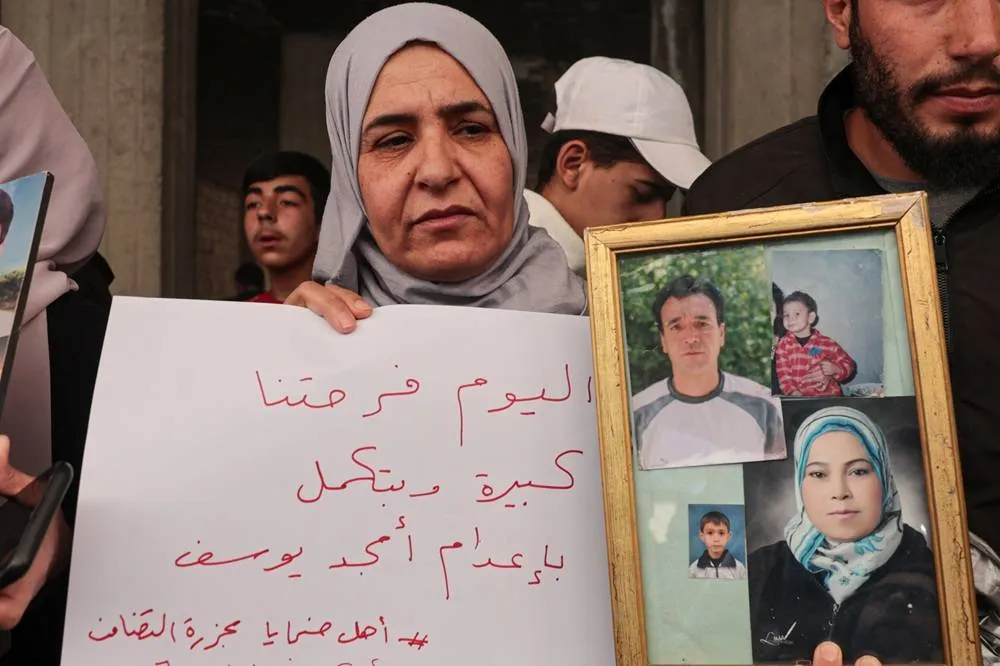 اليوم فرحتنا
كبيرة وبتكمل
بإعدام أمجد يوسف
# أهل ضحايا مجزرة التضامن